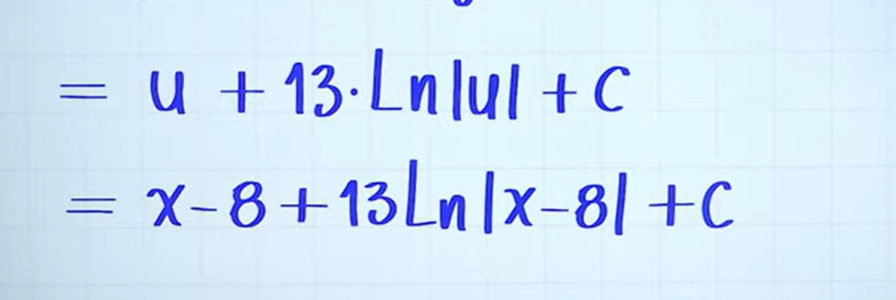 = u + 13·Ln|u| + C
= x-8+13Ln|x-8| +C